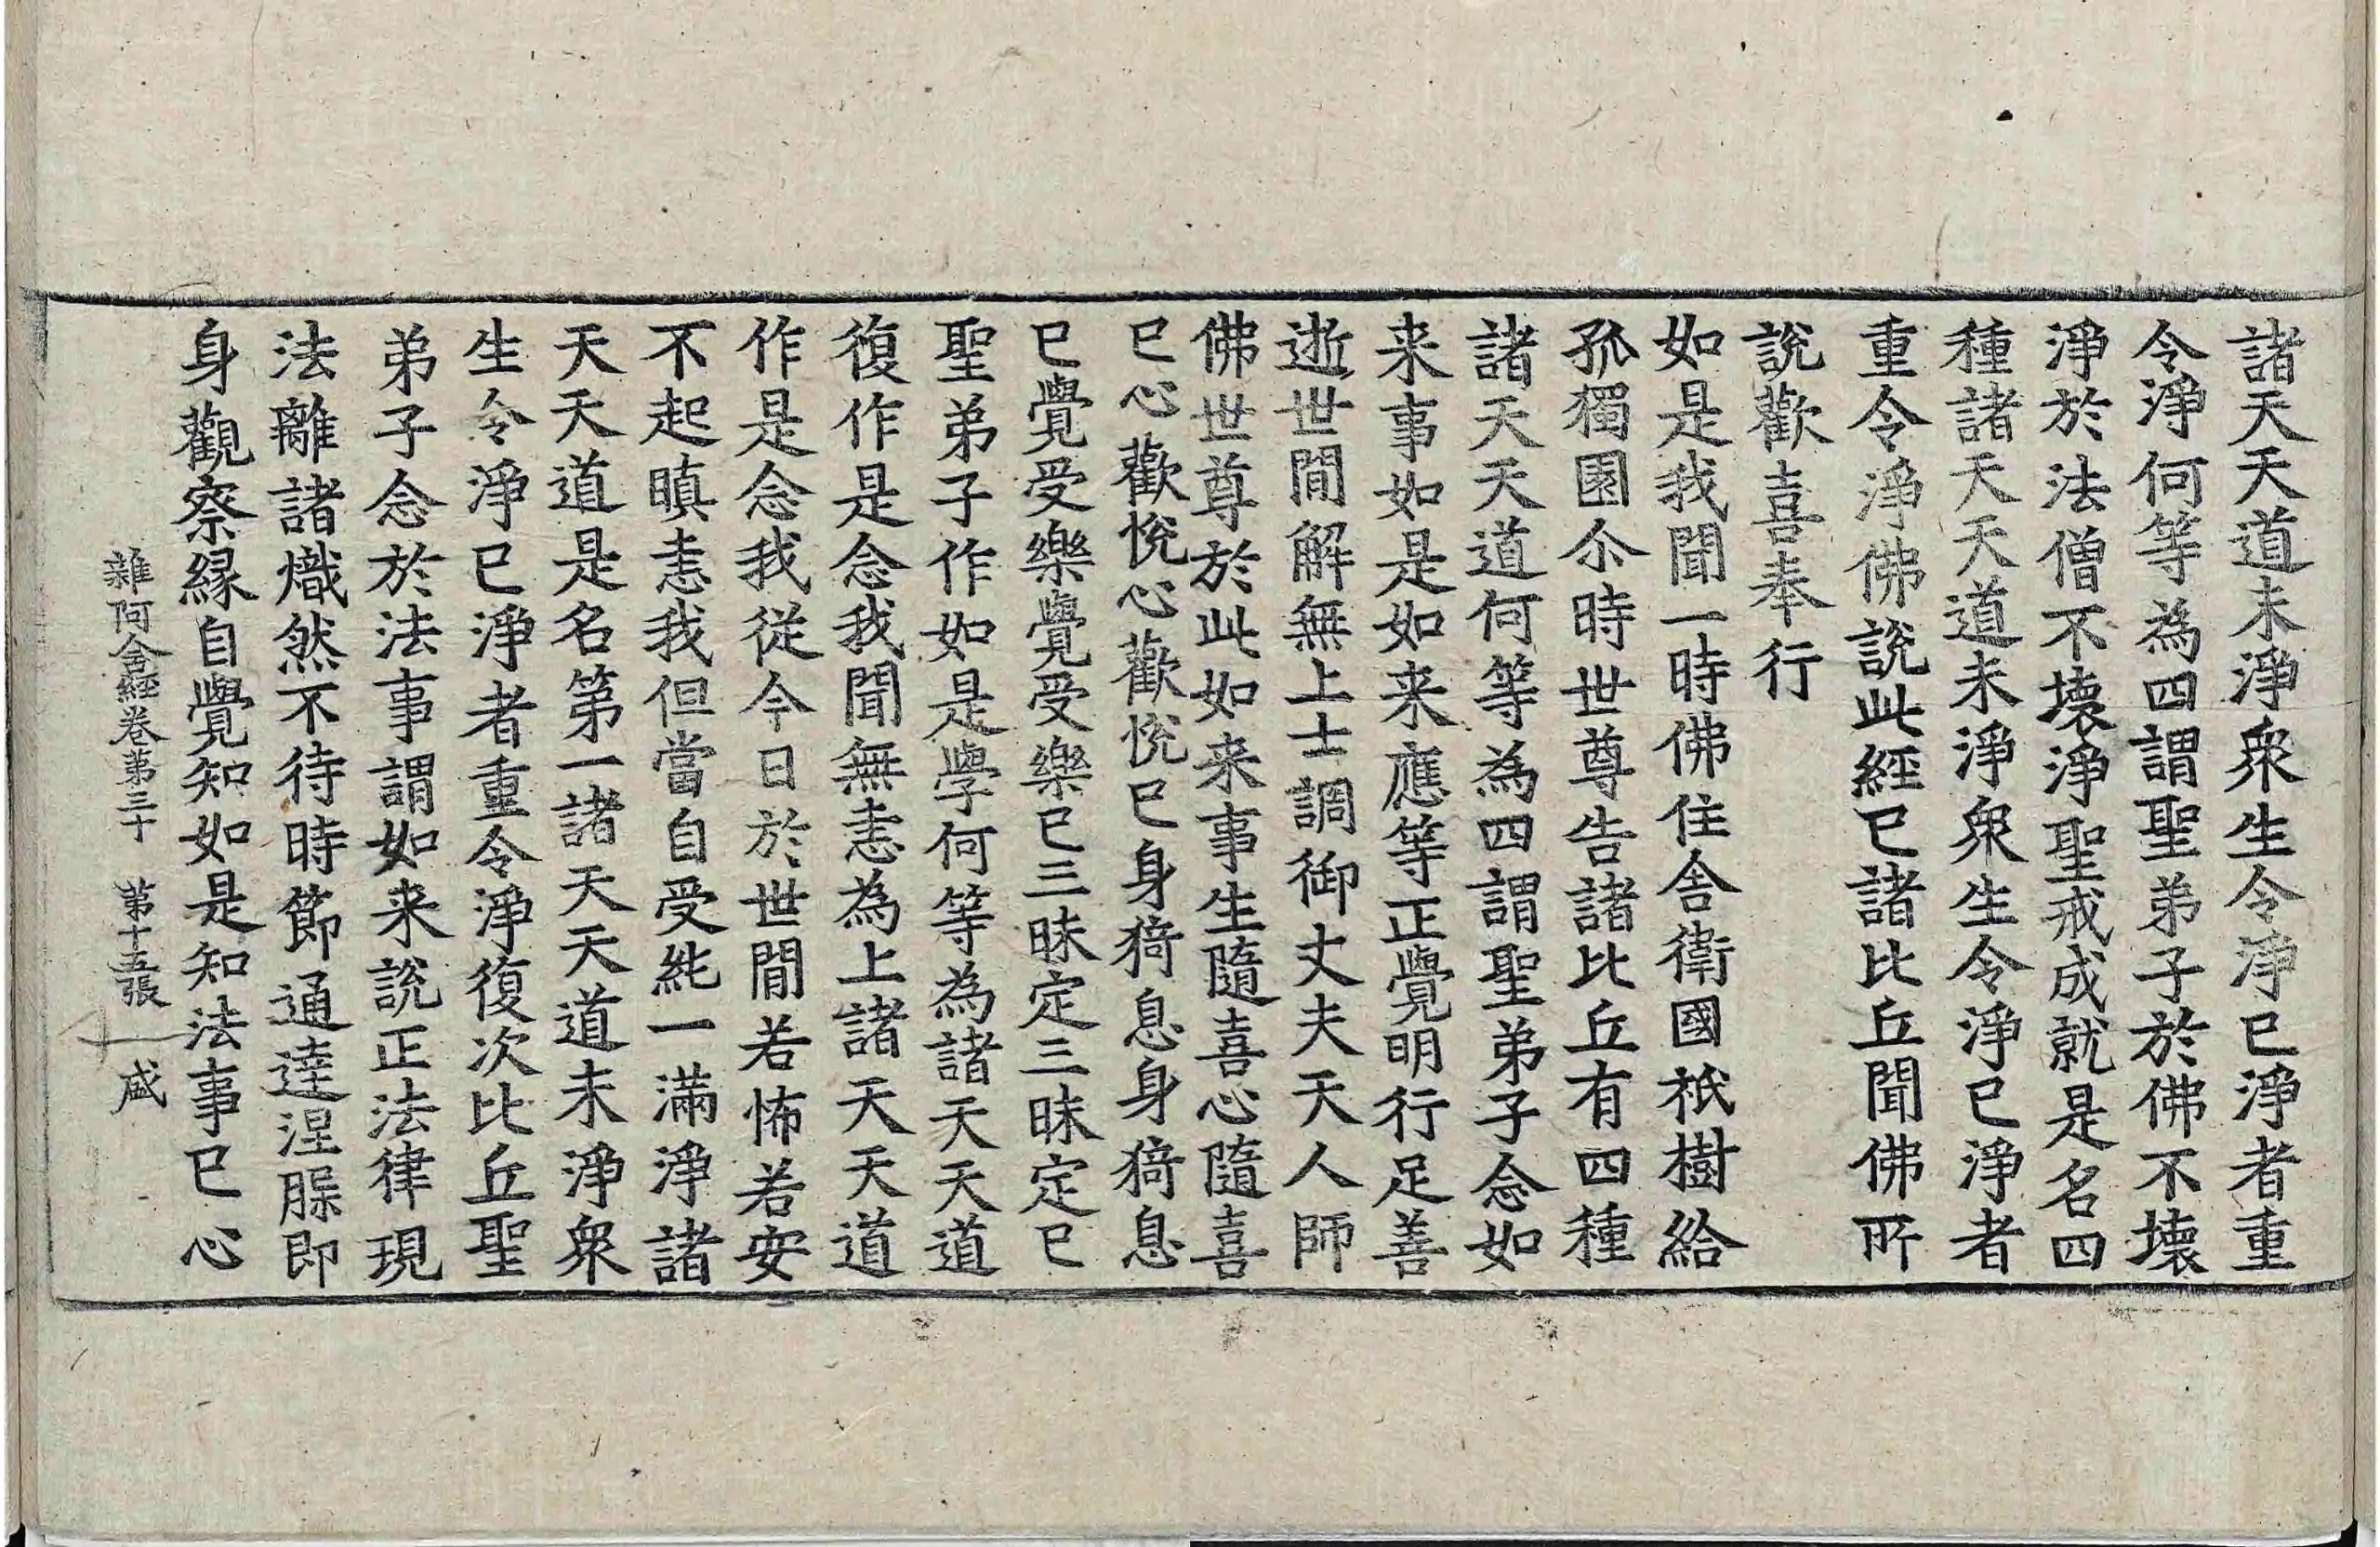 諸天天道未淨衆生令淨已淨者重
令淨何等為四謂聖弟子於佛不壞
淨於法僧不壞淨聖戒成就是名四
種諸天天道未淨衆生令淨已淨者
重令淨佛說此經已諸比丘聞佛所
說歡喜奉行
如是我聞一時佛住舍衛國祇樹給
孤獨園尒時世尊告諸比丘有四種
諸天天道何等為四謂聖弟子念如
来事如是如来應等正覺明行足善
逝世間解無上士調御丈夫天人師
佛世尊於此如来事生隨喜心隨喜
已心歡悅心歡悅已身猗息身猗息
已覺受樂覺受樂已三昧定三昧定已
聖弟子作如是學何等為諸天天道
復作是念我聞無恚為上諸天天道
作是念我從今日於世間若怖若安
不起瞋恚我但當自受純一滿淨諸
天天道是名第一諸天天道未淨衆
生令淨已淨者重令淨復次比丘聖
弟子念於法事謂如来說正法律現
法離諸熾然不待時節通達涅槃即
身觀察緣自覺知如是知法事已心
雜阿含經卷第三十 第十五張 盛